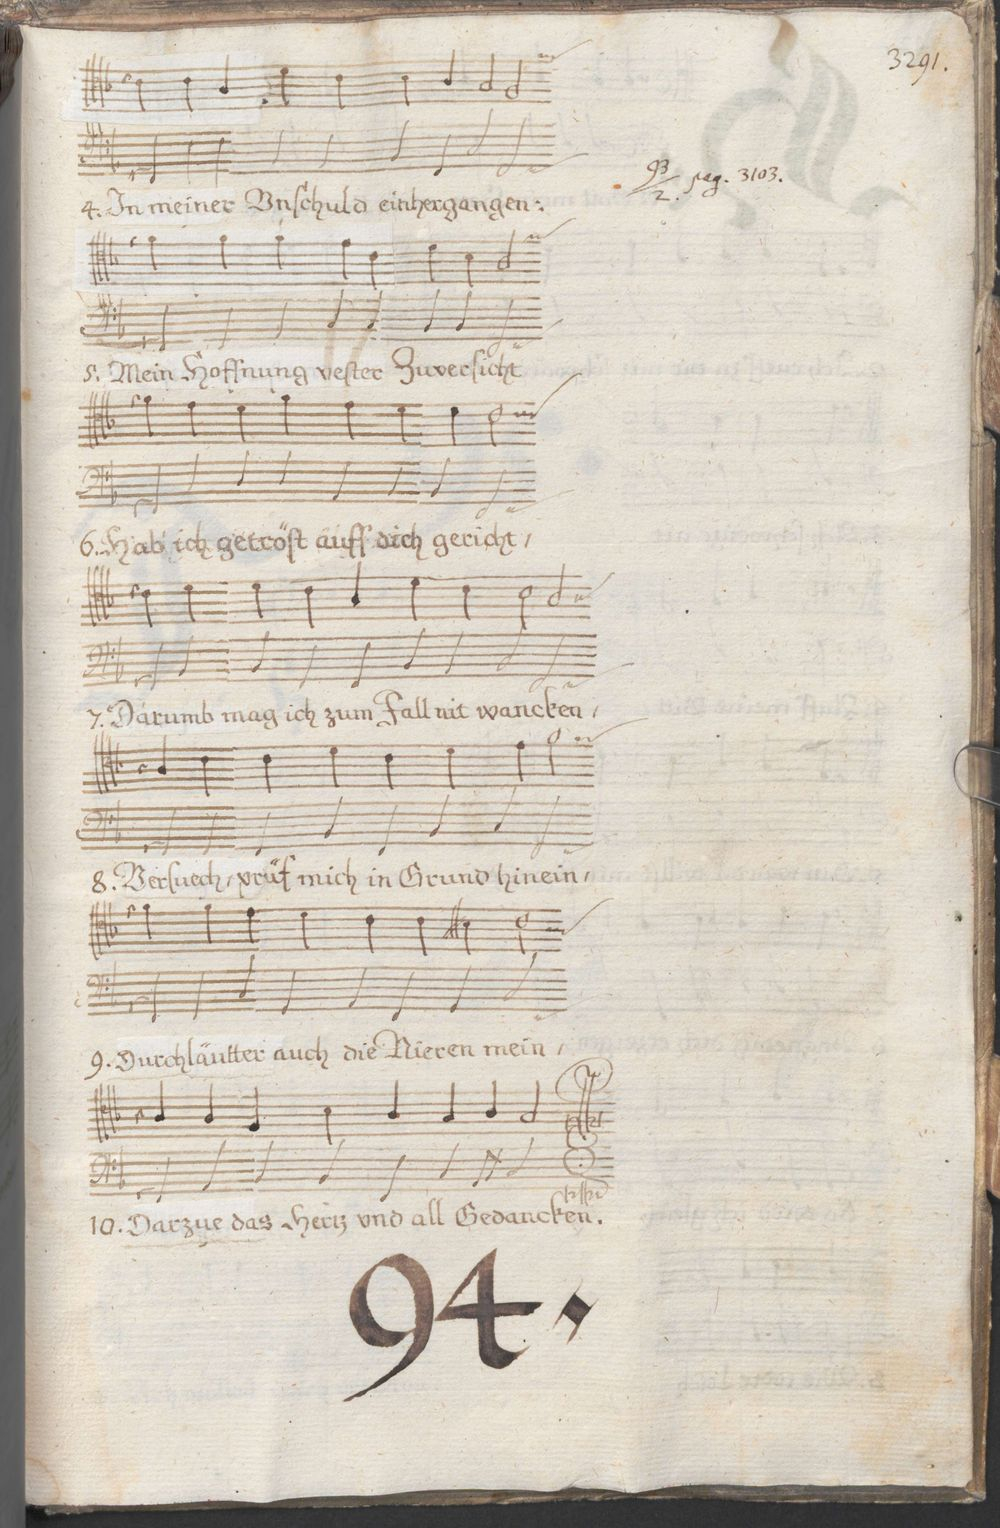 3291.
93/2. pag. 3103.
4. In meiner Vnschuld einhergangen:
5. Mein Hoffnung vester Zuversicht
6. Hab ich getröst auff dich gericht,
7. Darumb mag ich zum Fall nit wancken,
8. Versuech, prüf mich in Grund hinein,
9. Durchläutter auch die Nieren mein,
10. Darzue das Hertz vnd all Gedancken.
94.